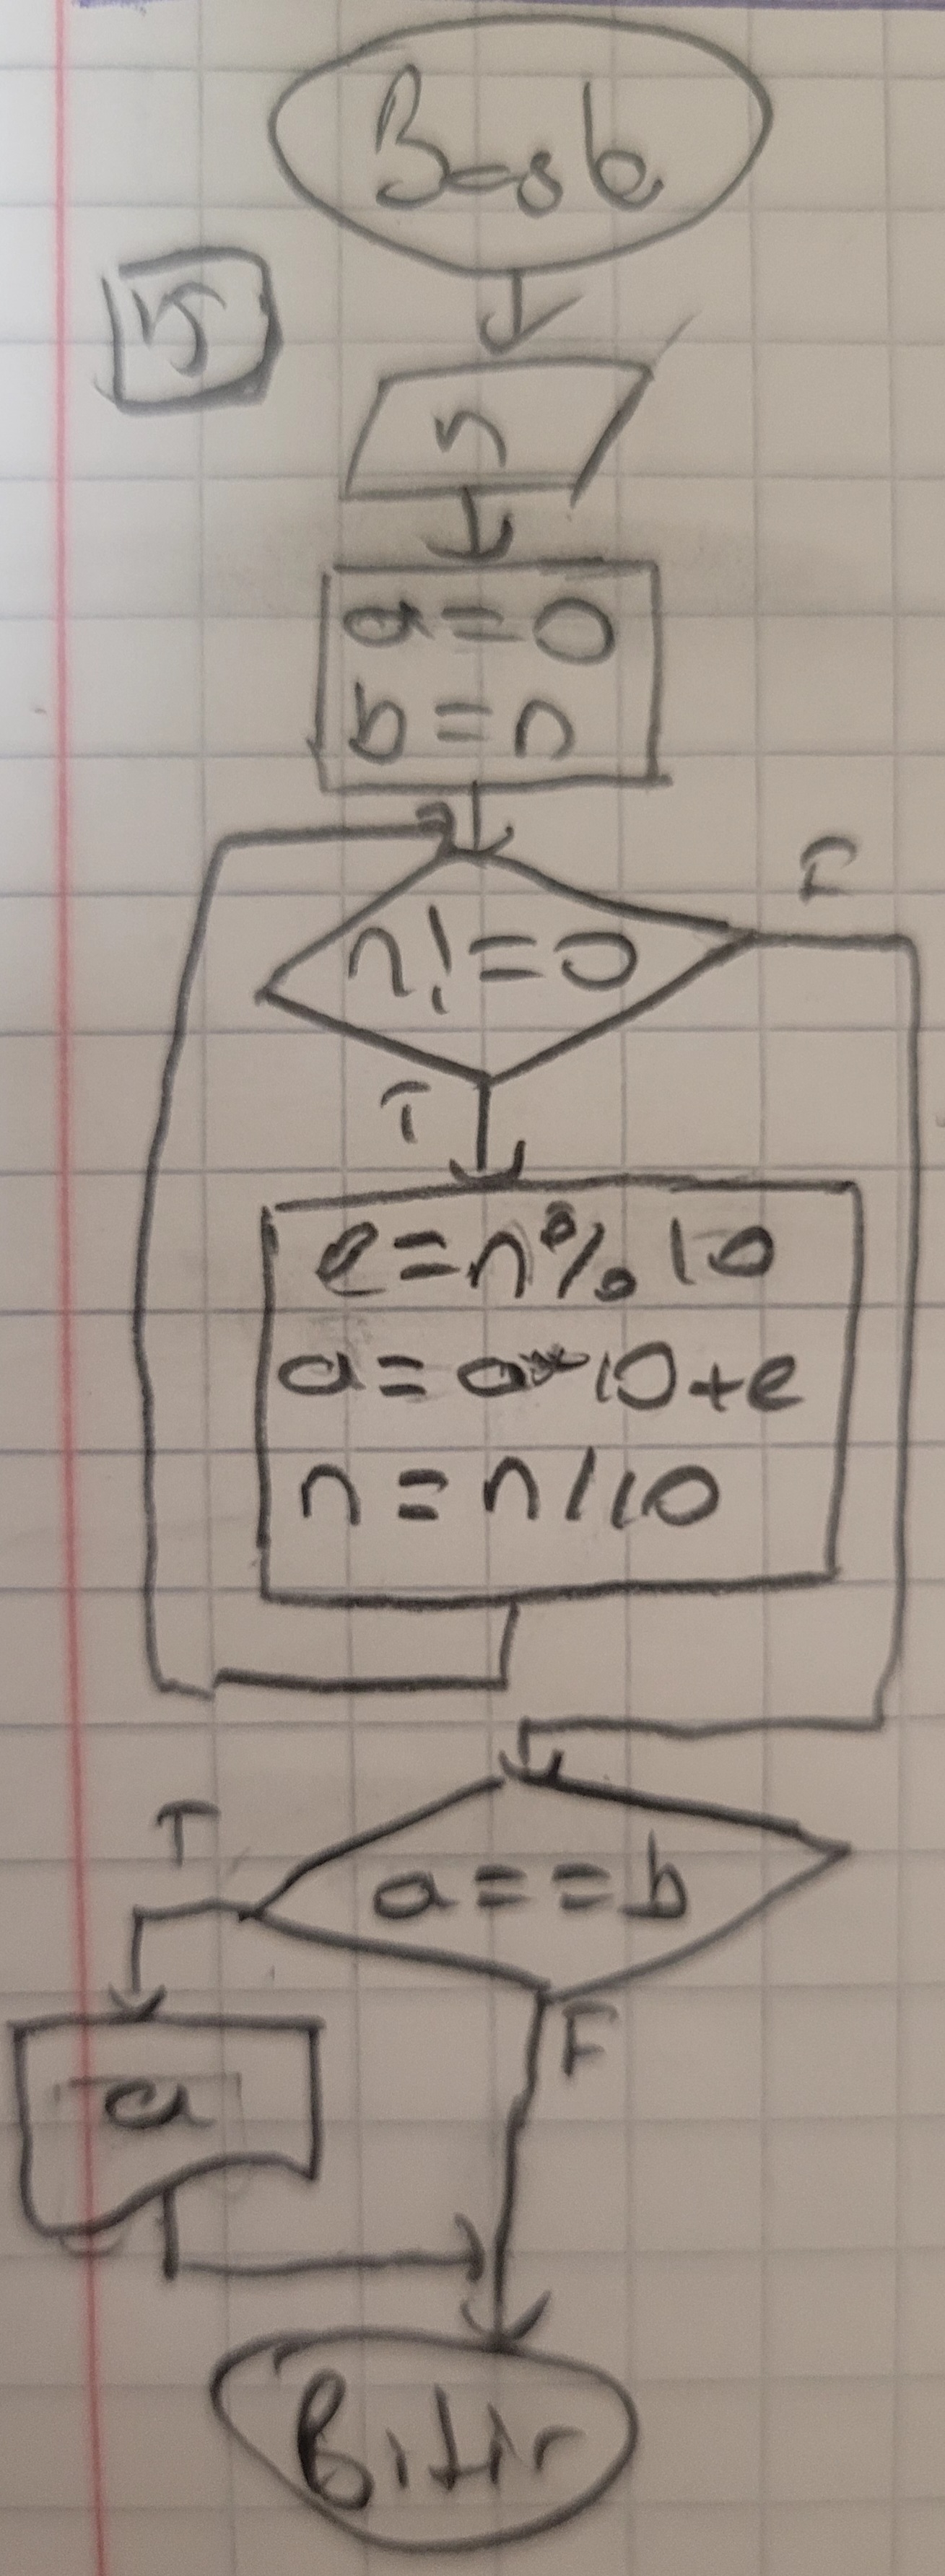 Başla
5
n
a=0
b=n
n!=0
F
T
e=n%10
a=a*10+e
n=n/10
T
a==b
F
a
Bitir